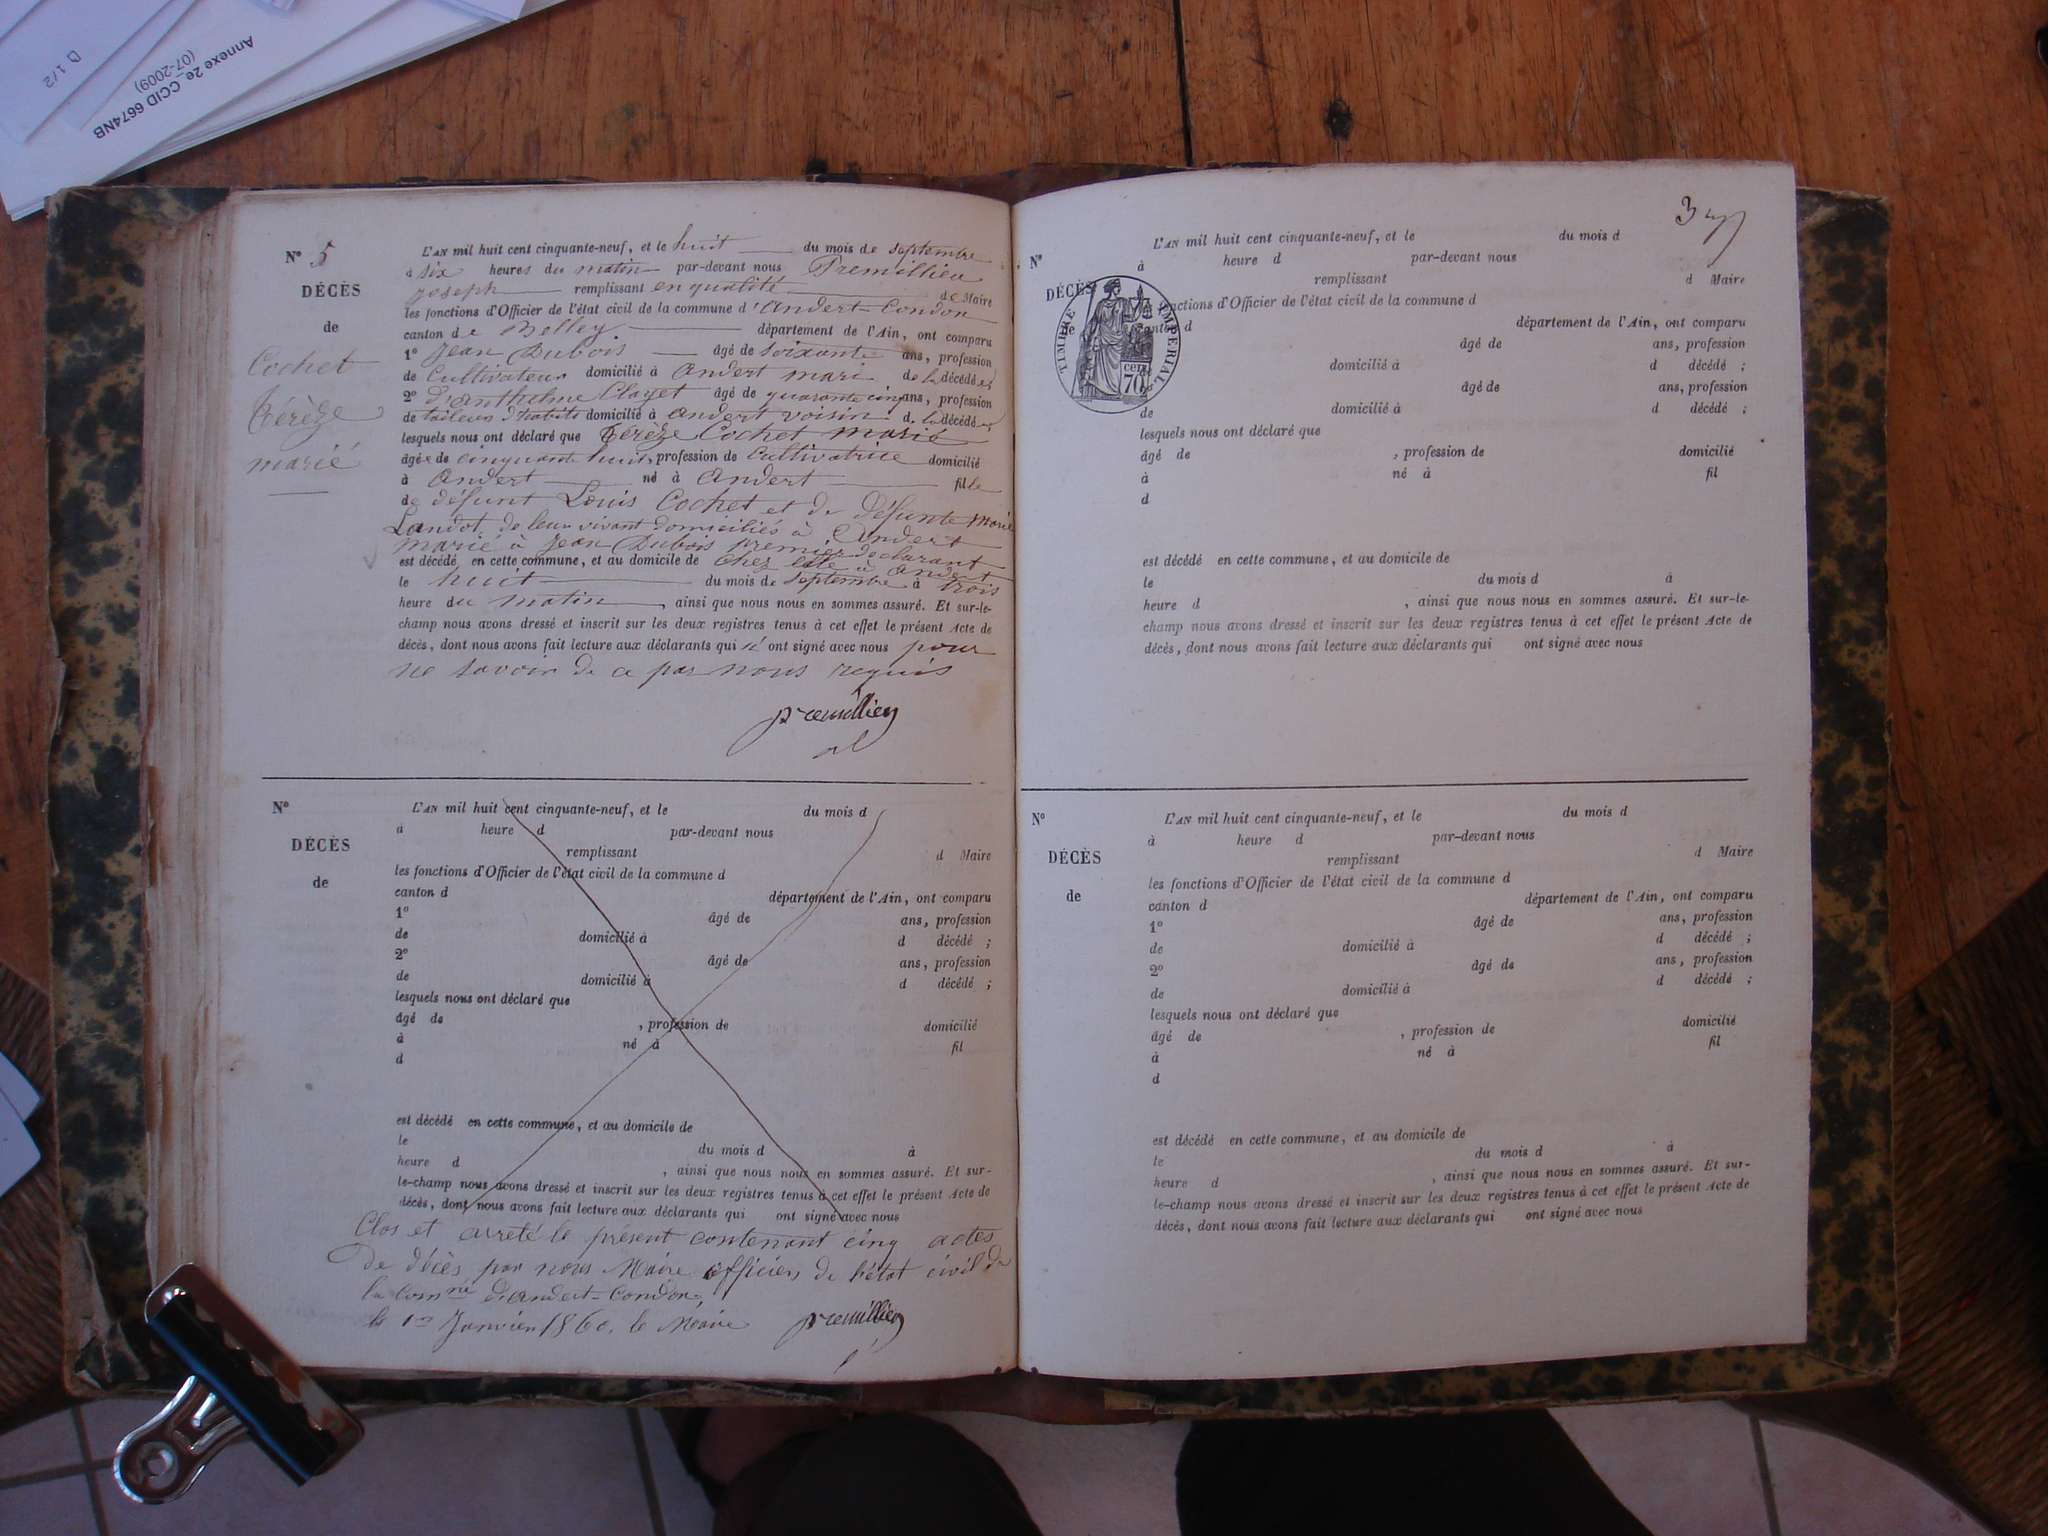 D 1/2
Annexe 2e_CCID 6674NB
(07-2009)
N° 5
DÉCÈS
de
Cochet
Térèze
marié
L'AN mil huit cent cinquante-neuf, et le huit du mois de septembre
à six heures du matin par-devant nous Premillieu
joseph remplissant en qualité de Maire
les fonctions d'Officier de l'état civil de la commune d'Andert-Condon
canton de Belley département de l'Ain, ont comparu
1° Jean Dubois âgé de soixante ans, profession
de Cultivateur domicilié à Andert mari de la décédée;
2° d'Anthelme Clayet âgé de quarante cinq ans, profession
de tailleur d'habits domicilié à andert voisin de la décédée;
lesquels nous ont déclaré que Térèze Cochet marié
âgée de cinquante huit, profession de Cultivatrice domicilié
à Andert né à Andert fille
de défunt Louis Cochet et de défunte marie
Landot, de leur vivant domiciliés à Andert
marié à Jean Dubois premier déclarant
est décédé en cette commune, et au domicile de chez elle à Andert
le huit du mois de septembre à trois
heure du matin, ainsi que nous nous en sommes assuré. Et sur-le-
champ nous avons dressé et inscrit sur les deux registres tenus à cet effet le présent Acte de
décès, dont nous avons fait lecture aux déclarants qui n' ont signé avec nous pour
ne savoir de ce par nous requis
premillieu
N°
DÉCÈS
de
L'AN mil huit cent cinquante-neuf, et le du mois d
à heure d par-devant nous
remplissant d Maire
les fonctions d'Officier de l'état civil de la commune d
canton d département de l'Ain, ont comparu
1° âgé de ans, profession
de domicilié à d décédé ;
2° âgé de ans, profession
de domicilié à d décédé ;
lesquels nous ont déclaré que
âgé de , profession de domicilié
à né à fil
d
est décédé en cette commune, et au domicile de
le du mois d à
heure d , ainsi que nous nous en sommes assuré. Et sur-
le-champ nous avons dressé et inscrit sur les deux registres tenus à cet effet le présent Acte de
décès, dont nous avons fait lecture aux déclarants qui ont signé avec nous
Clos et arreté le présent contenant cinq actes
De décès par nous Maire officiers de l'état civil de
la Com.ne d'andert-Condon,
le 1er Janvier 1860. le Maire premillieu
3
N°
DÉCÈS
de
TIMBRE IMPÉRIAL
70 cen
L'AN mil huit cent cinquante-neuf, et le du mois d
à heure d par-devant nous
remplissant d Maire
les fonctions d'Officier de l'état civil de la commune d
canton d département de l'Ain, ont comparu
âgé de ans, profession
domicilié à d décédé ;
âgé de ans, profession
de domicilié à d décédé ;
lesquels nous ont déclaré que
âgé de , profession de domicilié
à né à fil
d
est décédé en cette commune, et au domicile de
le du mois d à
heure d , ainsi que nous nous en sommes assuré. Et sur-le-
champ nous avons dressé et inscrit sur les deux registres tenus à cet effet le présent Acte de
décès, dont nous avons fait lecture aux déclarants qui ont signé avec nous
N°
DÉCÈS
de
L'AN mil huit cent cinquante-neuf, et le du mois d
à heure d par-devant nous
remplissant d Maire
les fonctions d'Officier de l'état civil de la commune d
canton d département de l'Ain, ont comparu
1° âgé de ans, profession
de domicilié à d décédé ;
2° âgé de ans, profession
de domicilié à d décédé ;
lesquels nous ont déclaré que
âgé de , profession de domicilié
à né à fil
d
est décédé en cette commune, et au domicile de
le du mois d à
heure d , ainsi que nous nous en sommes assuré. Et sur-
le-champ nous avons dressé et inscrit sur les deux registres tenus à cet effet le présent Acte de
décès, dont nous avons fait lecture aux déclarants qui ont signé avec nous